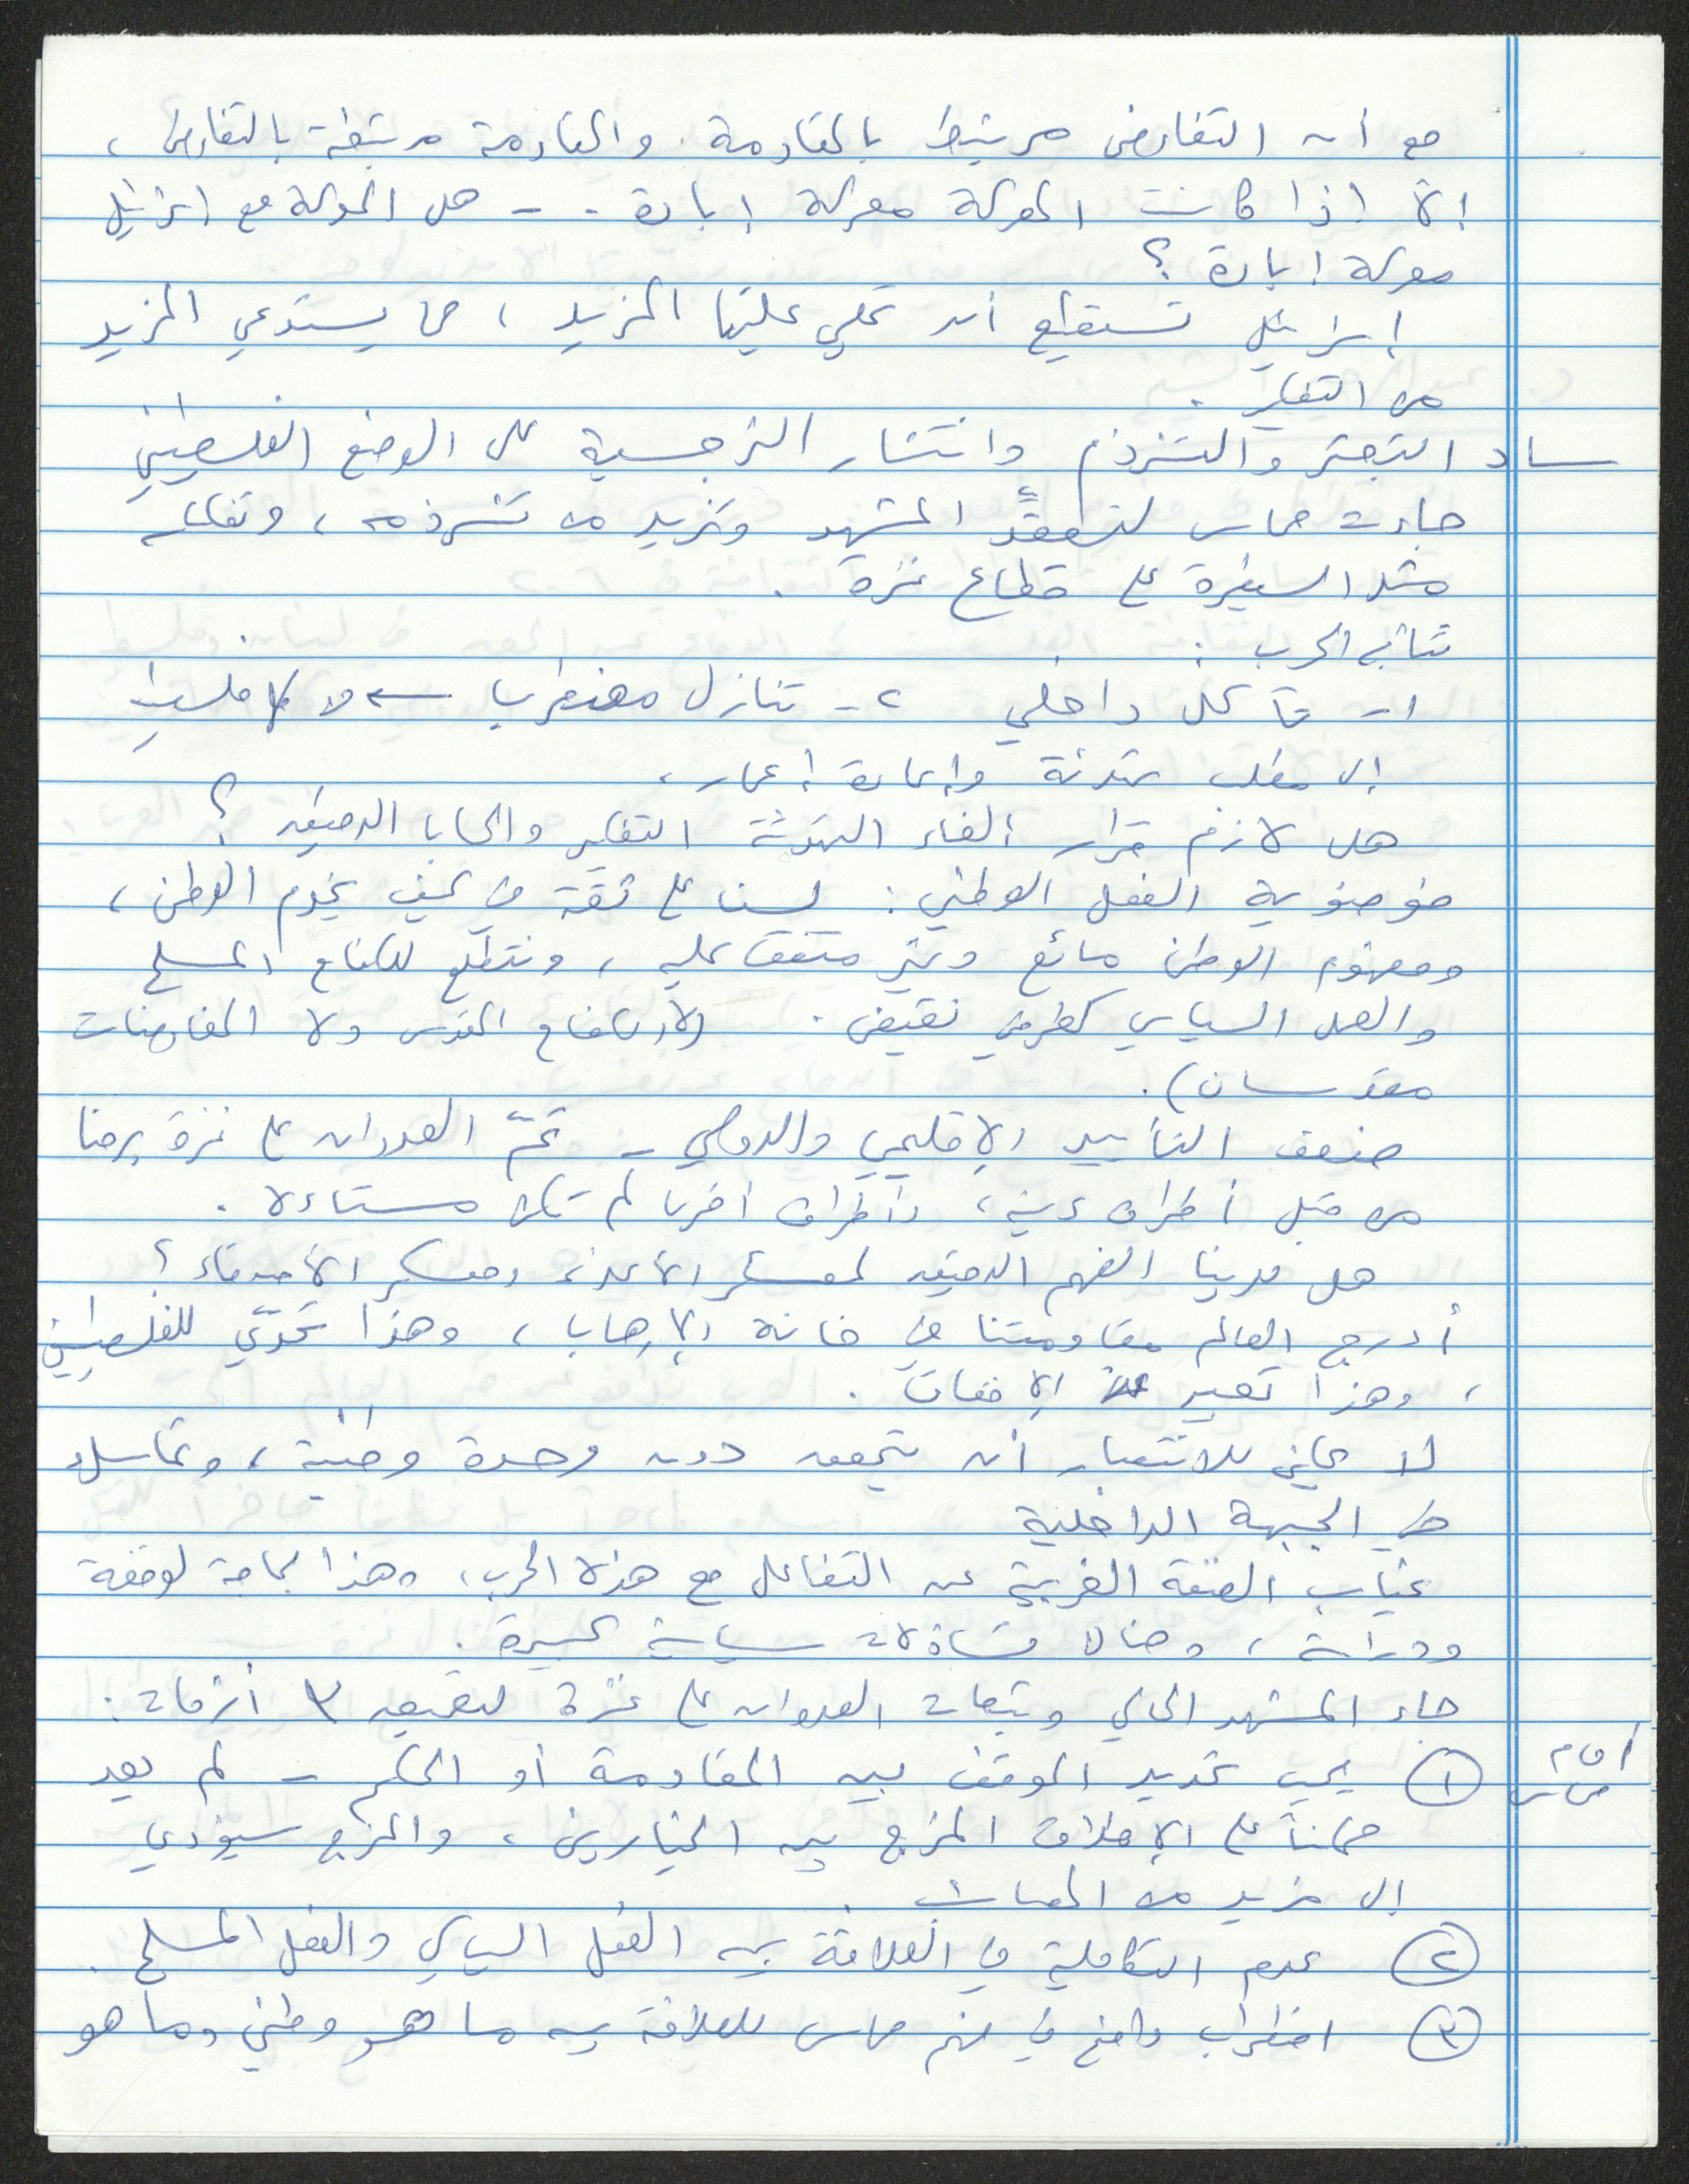 مع أن التفاوض مرتبط بالمقاومة. والمقاومة مرتبطة بالتفاوض،
إلا إذا كانت المعركة معركة إبادة .. - هل المعركة مع إسرائيل
معركة إبادة ؟
إسرائيل تستطيع أن تملي علينا المزيد ، مما يستدعي المزيد
من التفكير .
ساد التبعثر والتشرذم وانتشار النرجسية على الوضع الفلسطيني
جاءت حماس لتعقّد المشهد وتزيد من تشرذمه ،
مثل السيطرة على قطاع غزة .
نتائج الحرب :
١- تآكل داخلي ٢- تنازل من كل فلسطين
إلى مطلب تهدئة وإعادة إعمار .
هل لازم قرار إلغاء التهدئة التفكير والحساب الدقيق ؟
فوضوية الفعل الوطني : لسنا على ثقة في كيف يخدم الوطن ،
ومفهوم الوطن مائع وغير متفق عليه ، ونتطلع للكفاح المسلح
والعمل السياسي كطرفي نقيض . (لا الكفاح المقدس ولا المفاوضات
مقدسان) .
ضعف التأييد الإقليمي والدولي - تمّ العدوان على غزة برضا
من قبل أطراف عربية ، وأطراف أخرى لم تكن مستاءة .
هل لدينا الفهم الدقيق لمعسكر الأعداء ومعسكر الأصدقاء ؟
أدرج العالم مقاومتنا في خانة الإرهاب ، وهذا تحدّي للفلسطيني
، وهذا تعبير عن الإخفاق .
لا يمكن للانتصار أن يتحقق دون وحدة وطنية ، وتماسك
في الجبهة الداخلية
غياب الضفة الغربية عن التفاعل مع هذه الحرب ، وهذا بحاجة لوقفة
ودراسة ، وهناك تساؤلات سياسية كبيرة .
جاء المشهد الحالي وتبعات العدوان على غزة لتعميق ٣ أزمات :
أمام
حماس
① يجب تحديد الموقف بين المقاومة أو الحكم - لم يعد
ممكناً على الإطلاق المزج بين الخيارين ، والمزج سيؤدي
إلى مزيد من
② عدم التكاملية في العلاقة بين الفعل السياسي والفعل المسلح .
③ اضطراب واضح في فهم حماس للعلاقة بين ما هو وطني وما هو